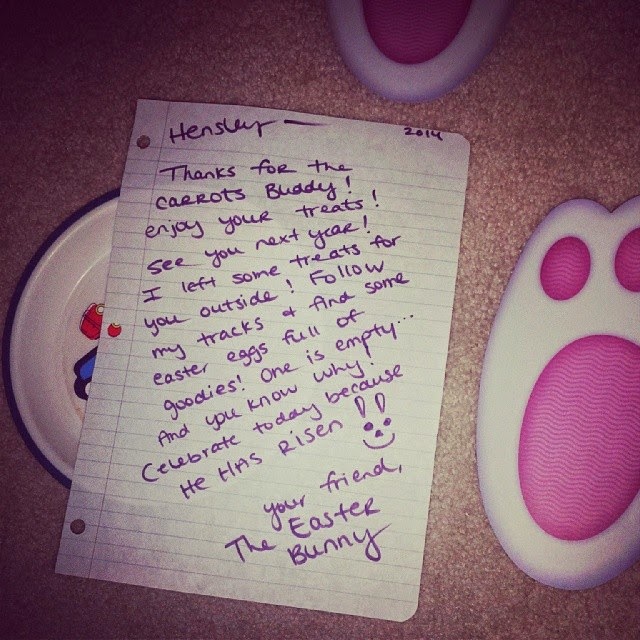 Hensley — 2014
Thanks for the
carrots Buddy!
enjoy your treats!
see you next year!
I left some treats for
you outside! Follow
my tracks & find some
easter eggs full of
goodies! One is empty...
And you know why.
Celebrate today because
He HAS RISEN!!
your friend,
The Easter
Bunny